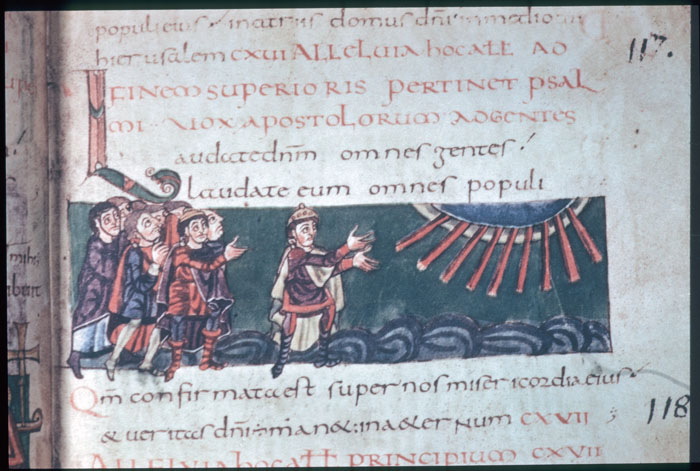 populi eius. inatriis domus dni inmedio
hierusalem CXVI ALLELUIA hOCATE AD
FINEM SUPERIORIS PERTINET PSAL
MI VOX APOSTOLORUM ADGENTES
117.
Laudate dnm omnes gentes.
laudate eum omnes populi
Qm confirmata est super nos misericordia eius.
& veritas dni man&; inaeternum CXVII
118
ALLELUIA hOCATE PRINCIPIUM CXVII